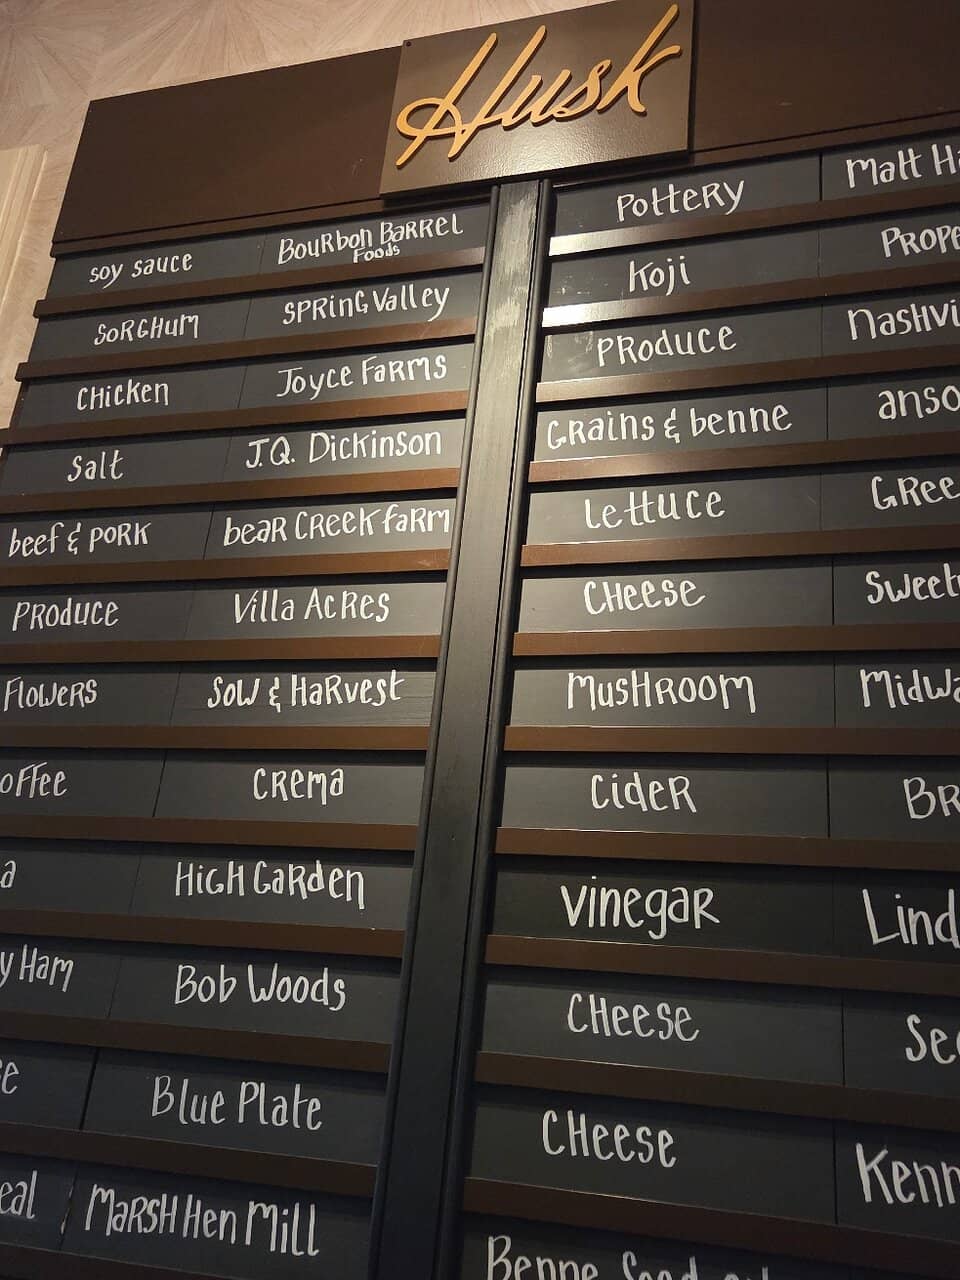 Husk
soy sauce
Bourbon Barrel
Foods
Sorghum
Spring Valley
Chicken
Joyce Farms
Salt
J.Q. Dickinson
beef & pork
bear Creek farm
Produce
Villa Acres
Flowers
Sow & Harvest
offee
Crema
a
High Garden
y Ham
Bob Woods
e
Blue Plate
eal
Marsh Hen Mill
Pottery
Matt Ha
Koji
Prope
Produce
Nashvi
Grains & benne
anso
Lettuce
Gree
Cheese
Sweet
Mushroom
Midwa
Cider
Br
Vinegar
Lind
Cheese
Se
Cheese
Kenn
Benne Seed